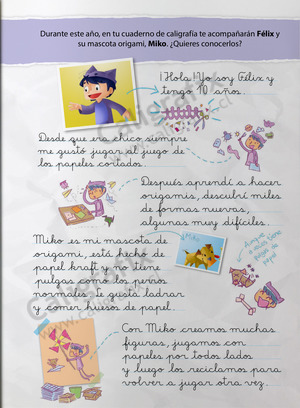 Durante este año, en tu cuaderno de caligrafía te acompañarán Félix y
su mascota origami, Miko. ¿Quieres conocerlos?
¡Hola! Yo soy Félix y
tengo 10 años.
Desde que era chico siempre
me gustó jugar al juego de
los papeles cortados.
Después aprendí a hacer
origamis, descubrí miles
de formas nuevas,
algunas muy difíciles.
Miko es mi mascota de
origami, está hecho de
papel kraft y no tiene
pulgas como los perros
normales. Le gusta ladrar
y comer huesos de papel.
¡MIKO!
Con Miko creamos muchas
figuras, jugamos con
papeles por todos lados
y luego los reciclamos para
volver a jugar otra vez.